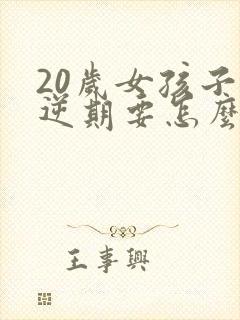 20歲女孩子
逆期要怎麼
王事興